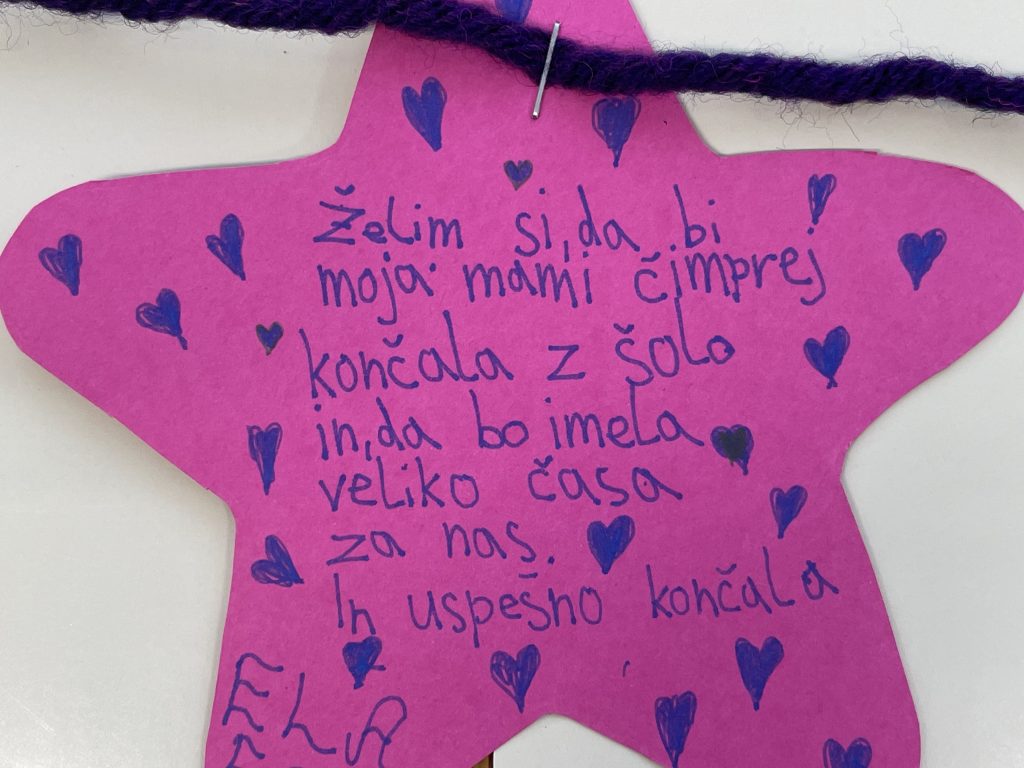 Želim si, da bi
moja mami čimprej
končala z šolo
in, da bo imela
veliko časa
za nas.
In uspešno končala
ELA